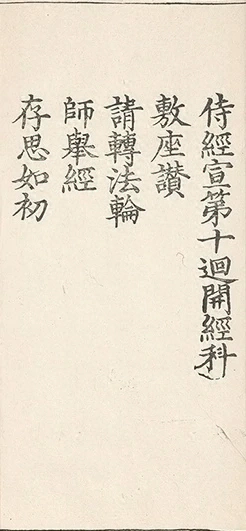 侍經宣第十迴開經科
敷座讃
請轉法輪
師舉經
存思如初